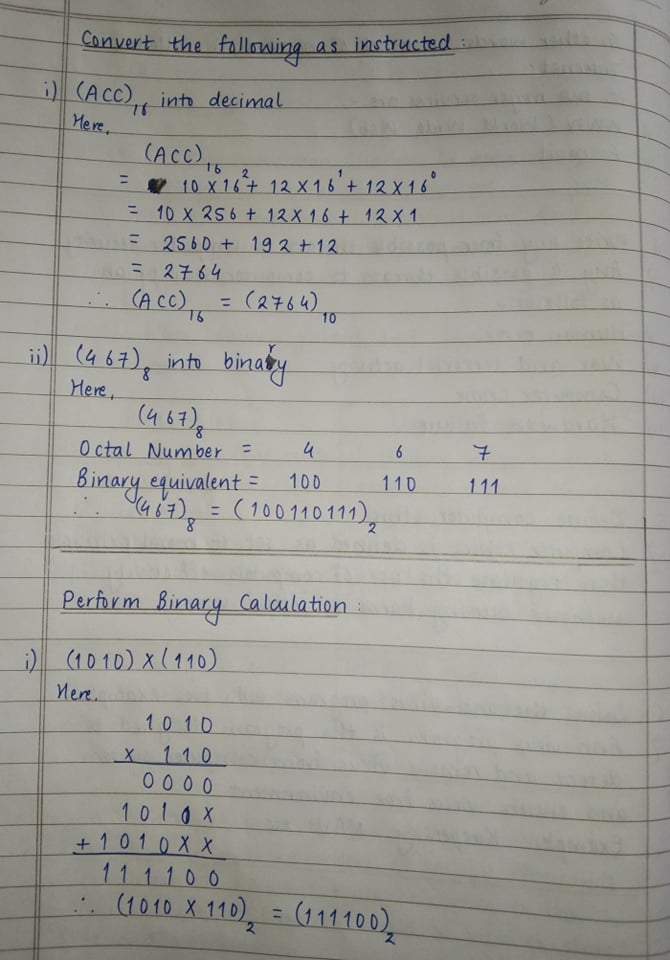 Convert the following as instructed :
i) (ACC)₁₆ into decimal
Here,
(ACC)₁₆
= 10 X 16² + 12 X 16¹ + 12 X 16⁰
= 10 X 256 + 12 X 16 + 12 X 1
= 2560 + 192 + 12
= 2764
∴ (ACC)₁₆ = (2764)₁₀
ii) (467)₈ into binary
Here,
(467)₈
Octal Number = 4 6 7
Binary equivalent = 100 110 111
∴ (467)₈ = (100110111)₂
Perform Binary Calculation :
i) (1010) X (110)
Here,
1010
x 110
0000
1010X
+1010XX
111100
∴ (1010 X 110)₂ = (111100)₂